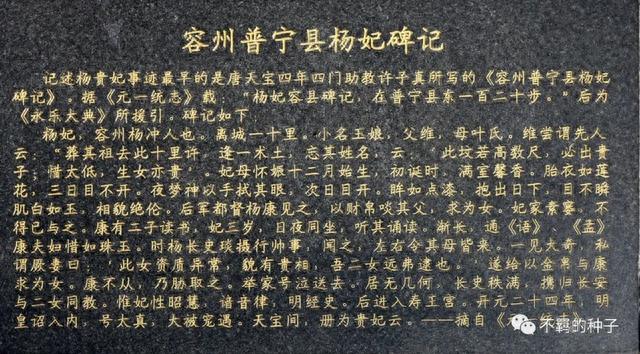 容州普宁县杨妃碑记
记述杨贵妃事迹最早的是唐天宝四年四门助教许子真所写的《容州普宁县杨妃
碑记》。据《元一统志》载："杨妃容县碑记，在普宁县东一百二十步。"后为
《永乐大典》所援引。碑记如下
杨妃，容州杨冲人也。离城一十里。小名玉娘，父维，母叶氏。维尝谓先人
云："葬其祖去此十里许，逢一术士，忘其姓名，云，'此坟若高数尺，必出贵
子；惜太低，生女亦贵'。妃母怀娠十二月始生，初诞时，满室馨香。胎衣如莲
花，三日目不开。夜梦神以手拭其眼，次日目开。眸如点漆，抱出日下，目不瞬
肌白如玉，相貌绝伦。后军都督杨康见之，以财帛啖其父，求为女。妃家素窭，不
得已与之。康有二子读书，妃三岁，日夜同坐，听其诵读。渐长，通《语》、《孟》
康夫妇惜如珠玉。时杨长史琰摄行帅事，闻之，左右令其母皆来。一见大奇，私
谓厥妻曰："此女资质异常，貌有贵相，吾二女远弗逮也。"遂给以金帛与康
求为女。康不从，乃胁取之。举家号泣送去。居无几何，长史秩满，携归长安
与二女同教。惟妃性昭慧，谙音律，明经史。后进入寿王宫。开元二十四年，明
皇诏入内，号太真，大被宠遇。天宝间，册为贵妃云。——摘自《
不羁的种子